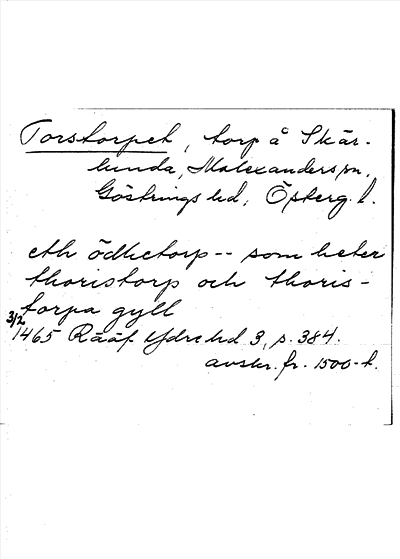 Torstorpet, torp å Skär-
lunda, Malexanders sn,
Göstrings hd, Österg. l.
eth ödhetorp -- som heter
thoristorp och thoris-
torpa gyll
3/2 1465 Rääf Ydre hd 3, s. 384.
avskr. fr. 1500-t.